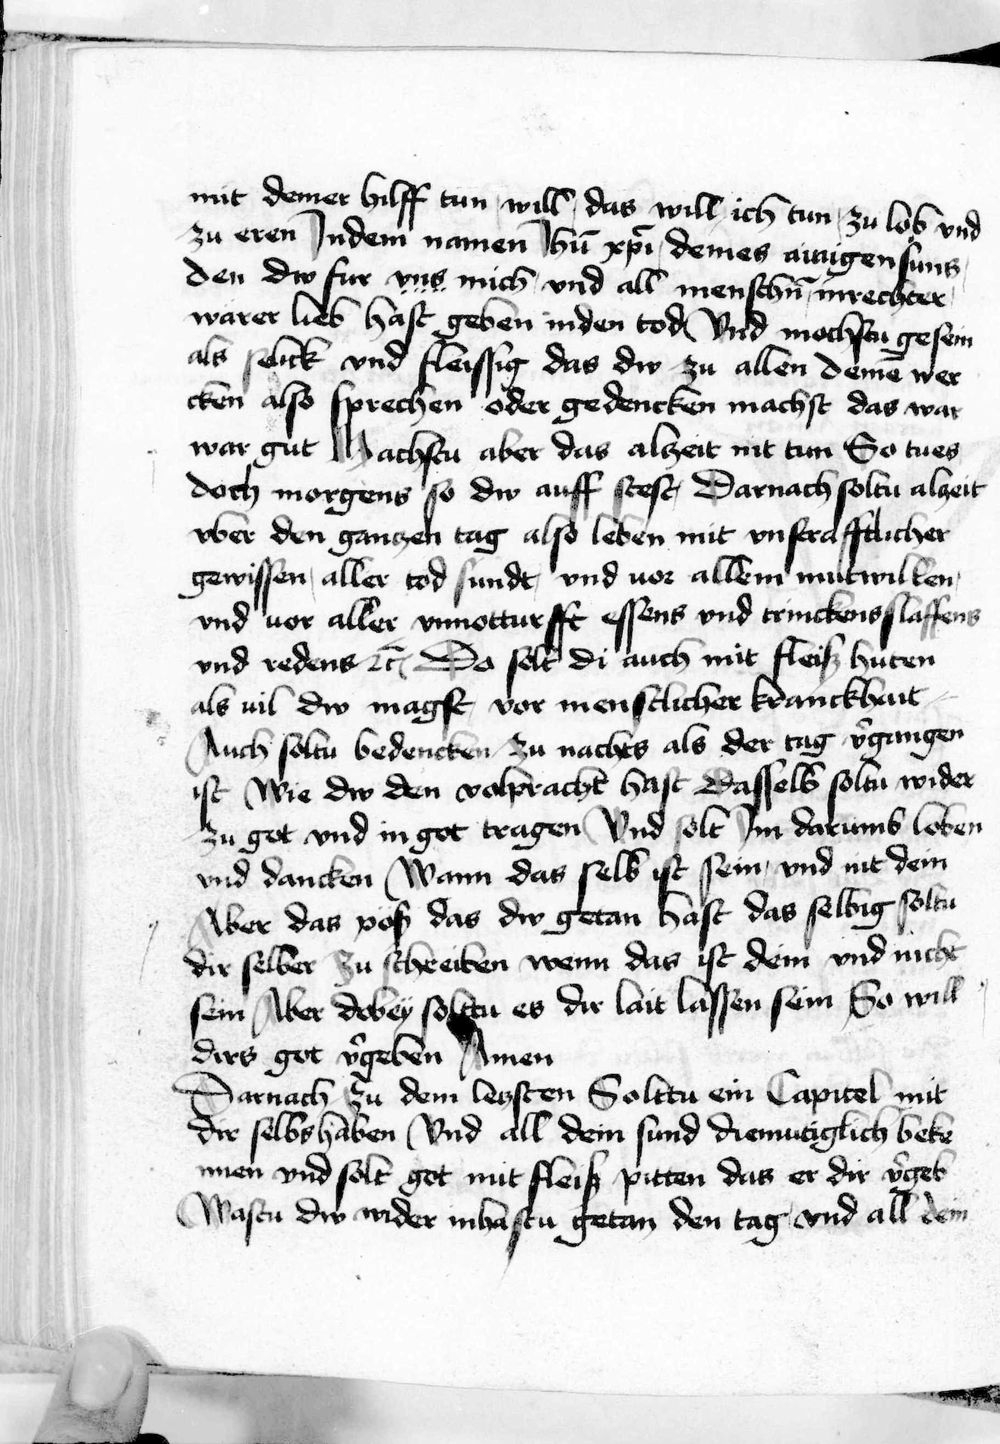 mit deiner hilff tun will das will ich tun zu lob und
zu eren Jndem namen Jhū xp̄i deines ainigen suns
den dw fur vns mich vnd all menschn̄ inrechter
warer lieb hast geben inden tod Vnd mochstu gesein
als selick vnd fleissig das dw zu allen deinē wer
cken also sprechen oder gedencken machst das war
war gut Machstu aber das alzeit nit tun So tues
doch morgens so dw auff stest Darnach soltu alzeit
vber den ganzen tag also leben mit vnstrafftlicher
gewissen aller tod sundt vnd uor allem mutwillen
vnd uor aller vnnotturfft essens vnd trinckens slaffens
vnd redens ꝛc̄ Do solt di auch mit fleiß huten
als uil dw magst vor menschlicher kranckhait
Auch soltu bedencken zu nachts als der tag v̄gangen
ist Wie dw den volpracht hast Dasselb soltu wider
zu got vnd in got tragen Vnd solt Jm darumb loben
vnd dancken Wann das selb ist sein vnd nit dein
Aber das pöß das dw getan hast das selbig soltu
dir selber zu schreiben wenn das ist dein vnd nicht
sein Aber dobey solttu es dir lait lassen sein So will
dirs got v̄geben Amen
Darnach zu dem letzsten Solttu ein Capitel mit
dir selbs haben Vnd all dein sund diemutiglich beke
nnen vnd solt got mit fleiß pitten das er dir v̄geb
Wastu dw wider inhastu getan den tag vnd all dein